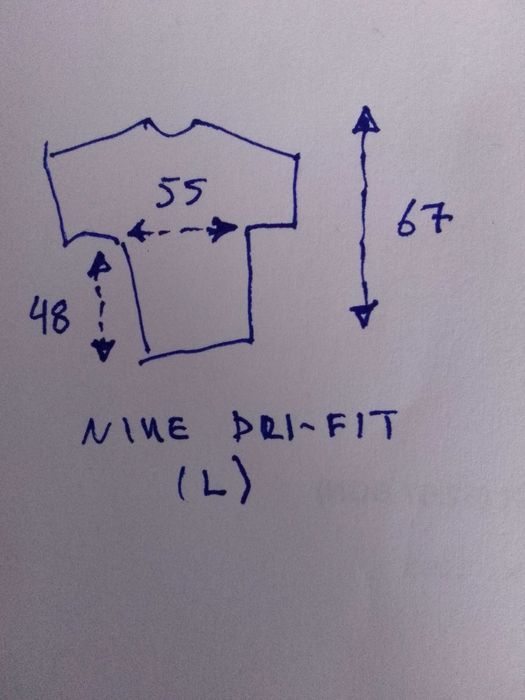 55
67
48
NIKE DRI-FIT
(L)